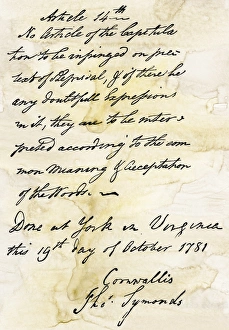 Article 14th
No Article of the Capitula
tion to be infringed on pre
text of Reprisal, & if there be
any doubtfull Expressions
in it, they are to be inter
preted according to the com
mon Meaning & Acceptation
of the Words.
Done at York in Virginia
this 19th day of October 1781
Cornwallis
Thos. Symonds